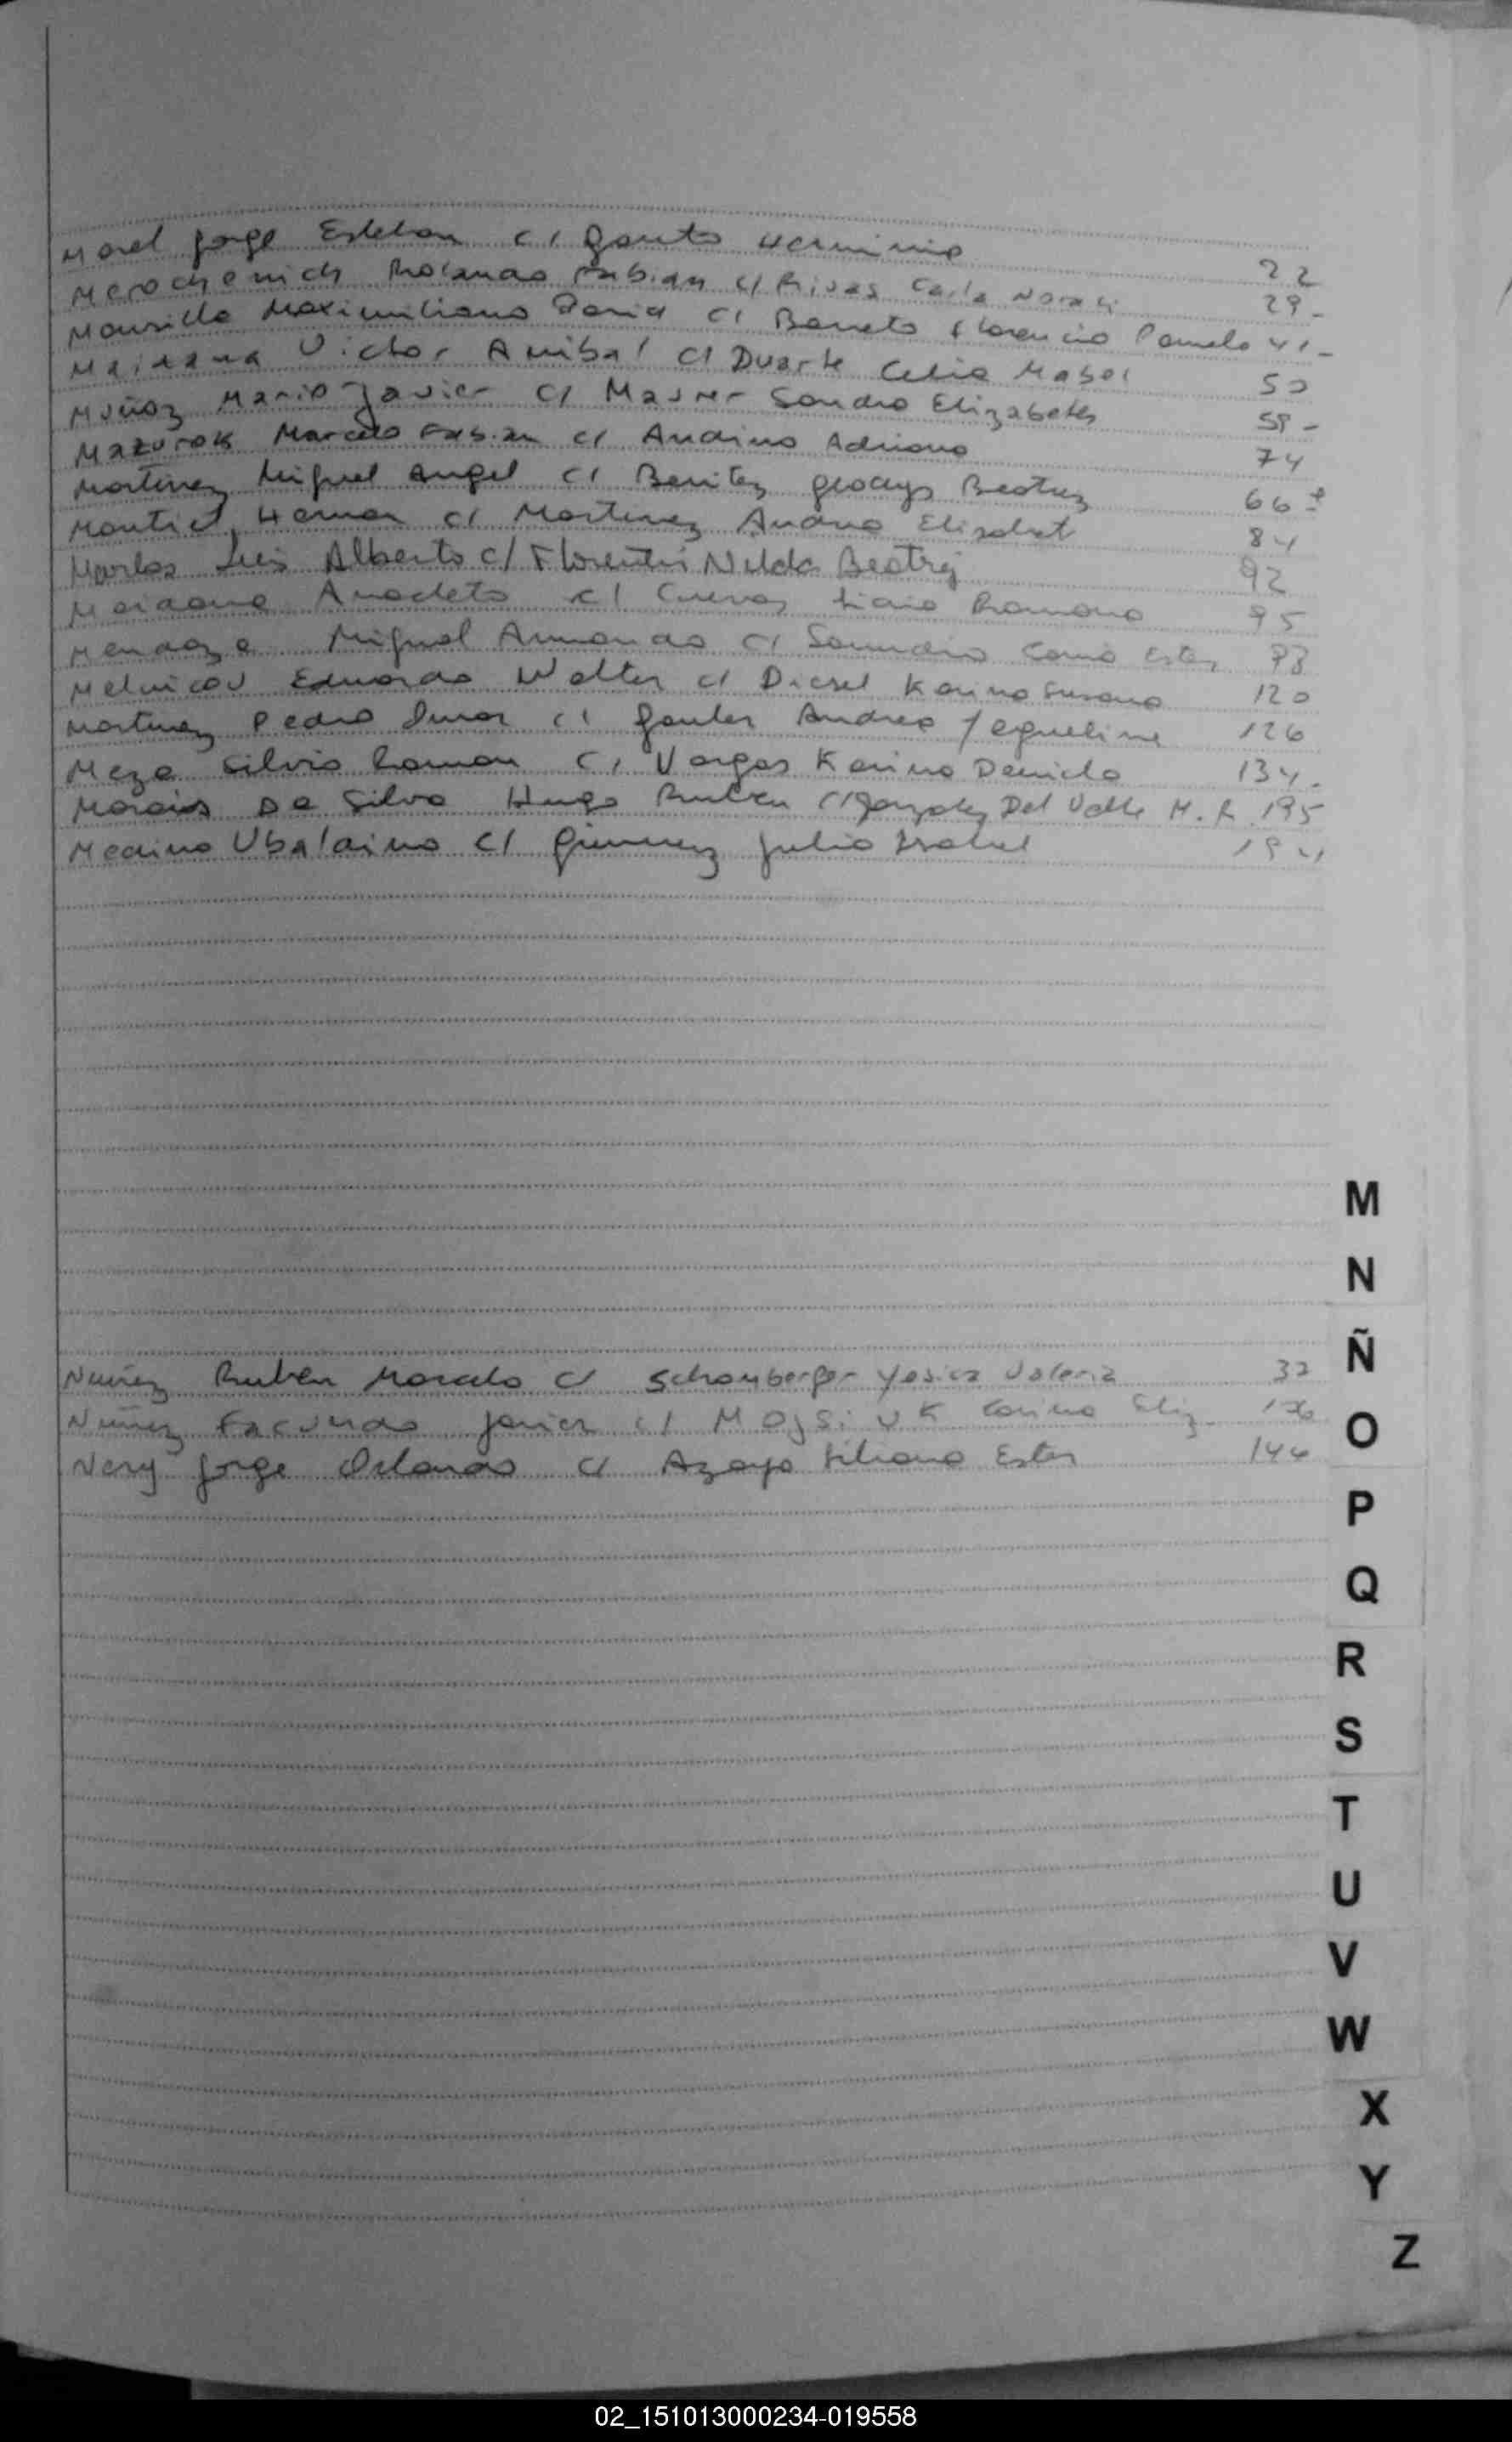 Morel Jorge Esteban c/ Gauto Herminia 22
Merochenich Rolando Fabian c/ Rivas Carla Norali 29-
Mansilla Maximiliano Dario c/ Barreto Florencia Pamela 41-
Maidana Victor Anibal c/ Duarte Celia Mabel 50
Muñoz Mario Javier c/ Masner Sandra Elizabeth 59-
Mazurok Marcelo Fabian c/ Andino Adriana 74
Martinez Miguel Angel c/ Benitez Gladys Beatriz 66
Montiel Hernan c/ Martinez Andrea Elizabet 84
Luis Alberto c/ Florentin Nilda Beatriz 92
Maidana Anacleto c/ Cuevas Ramona 95
Mendoza Miguel Armando c/ Ester
Melnicov Eduardo Walter c/ Diesel Karina Susana 120
Martinez Pedro Omar c/ Andrea Yequeline 126
Meza Silvio Ramon c/ Vargas Karina Daniela 134-
Morais Da Silva Hugo Ruben c/ Gonzalez Del Valle M. R. 195
Medina Ubaldino c/ Gimenez Julia Isabel 194
Nuñez Ruben Marcelo c/ Schomberger Yesica Valeria 32
Nuñez Facundo Javier c/ Mojsiuk Carina Eliz.
Nery Jorge Orlando c/ Azaya Liliana Ester 144
M
N
Ñ
O
P
Q
R
S
T
U
V
W
X
Y
Z
02_151013000234-019558